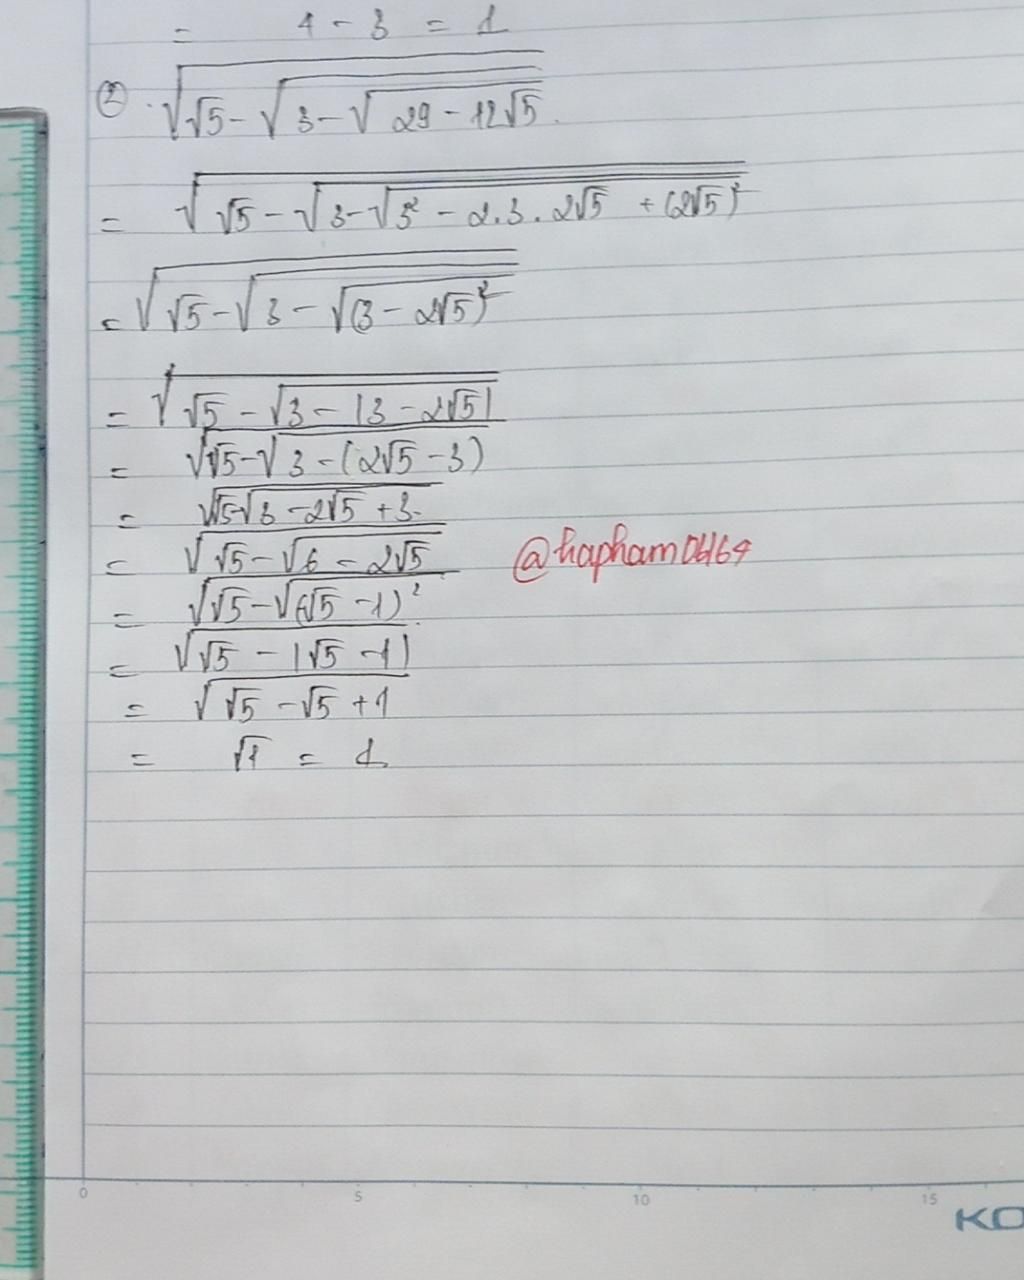 = 4 - 3 = 1
② √(√5 - √(3 - √(29 - 12√5)))
= √(√5 - √(3 - √(3² - 2.3.2√5 + (2√5)²)))
= √(√5 - √(3 - √((3 - 2√5)²)))
= √(√5 - √(3 - |3 - 2√5|))
= √(√5 - √(3 - (2√5 - 3)))
= √(√5 - √(3 - 2√5 + 3))
= √(√5 - √(6 - 2√5)) @hapham06164
= √(√5 - √((√5 - 1)²))
= √(√5 - |√5 - 1|)
= √(√5 - √5 + 1)
= √1 = 1
0 5 10 15
KO